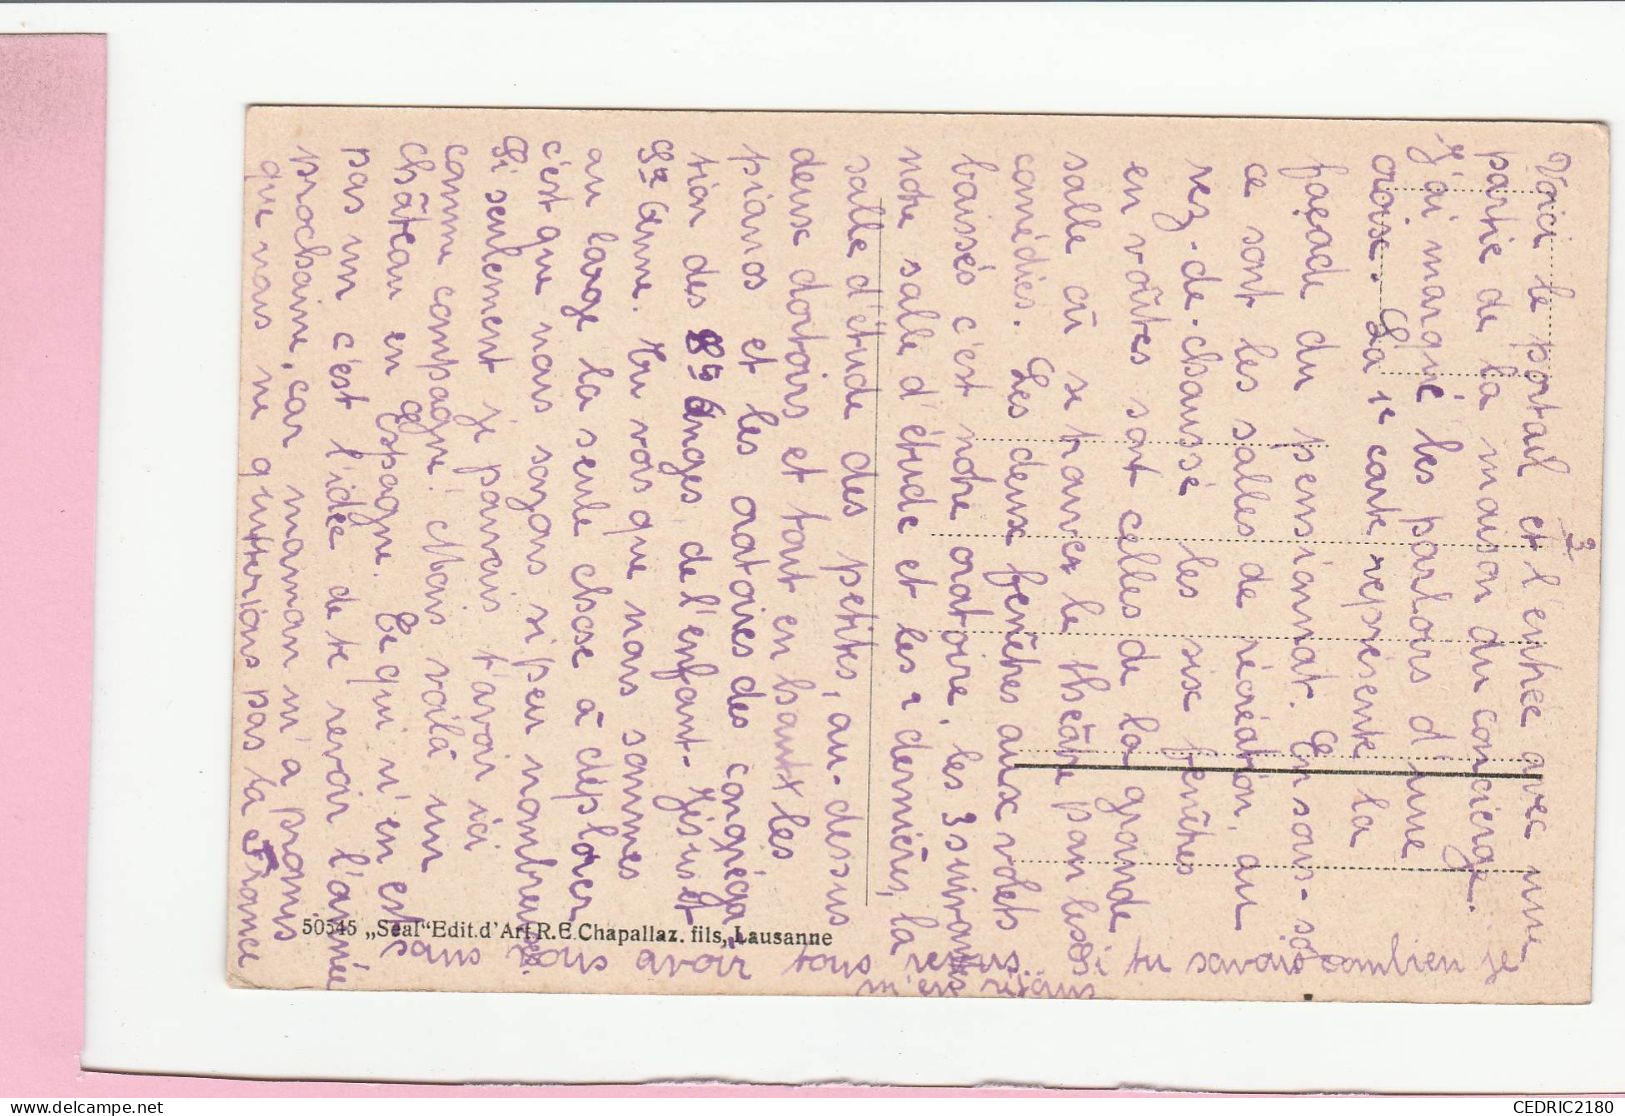 3
Voici le portail et l'entrée avec une
partie de la maison du concierge.
J'ai marqué les parloirs d'une
croix. La 1e carte représente la
façade du pensionnat. En sous-sol
ce sont les salles de récréation, au
rez-de-chaussé les six fenêtres
en voûtes sont celles de la grande
salle où se trouve le théâtre pour les
comédies. Les deux fenêtres aux volets
baissés c'est notre oratoire, les 3 suivantes
notre salle d'étude et les 2 dernières, la
salle d'étude des petites, au-dessus
deux dortoirs et tout en haut les
pianos et les oratoires des congréga-
tion des Sts Anges, de l'enfant-Jésus et
Ste Anne. Tu vois que nous sommes
au large la seule chose à déplorer
c'est que nous soyons si peu nombreuses.
Si seulement je pouvais t'avoir ici
comme compagne! Mais voilà un
château en Espagne. Ce qui n'en est
pas un c'est l'idée de te revoir l'année
prochaine, car maman m'a promis
que nous ne quitterions pas la France
sans vous avoir tous revus. Si tu savais combien je
m'en réjouis
50545 „Seal“ Edit. d'Art R.E. Chapallaz. fils, Lausanne
CEDRIC2180